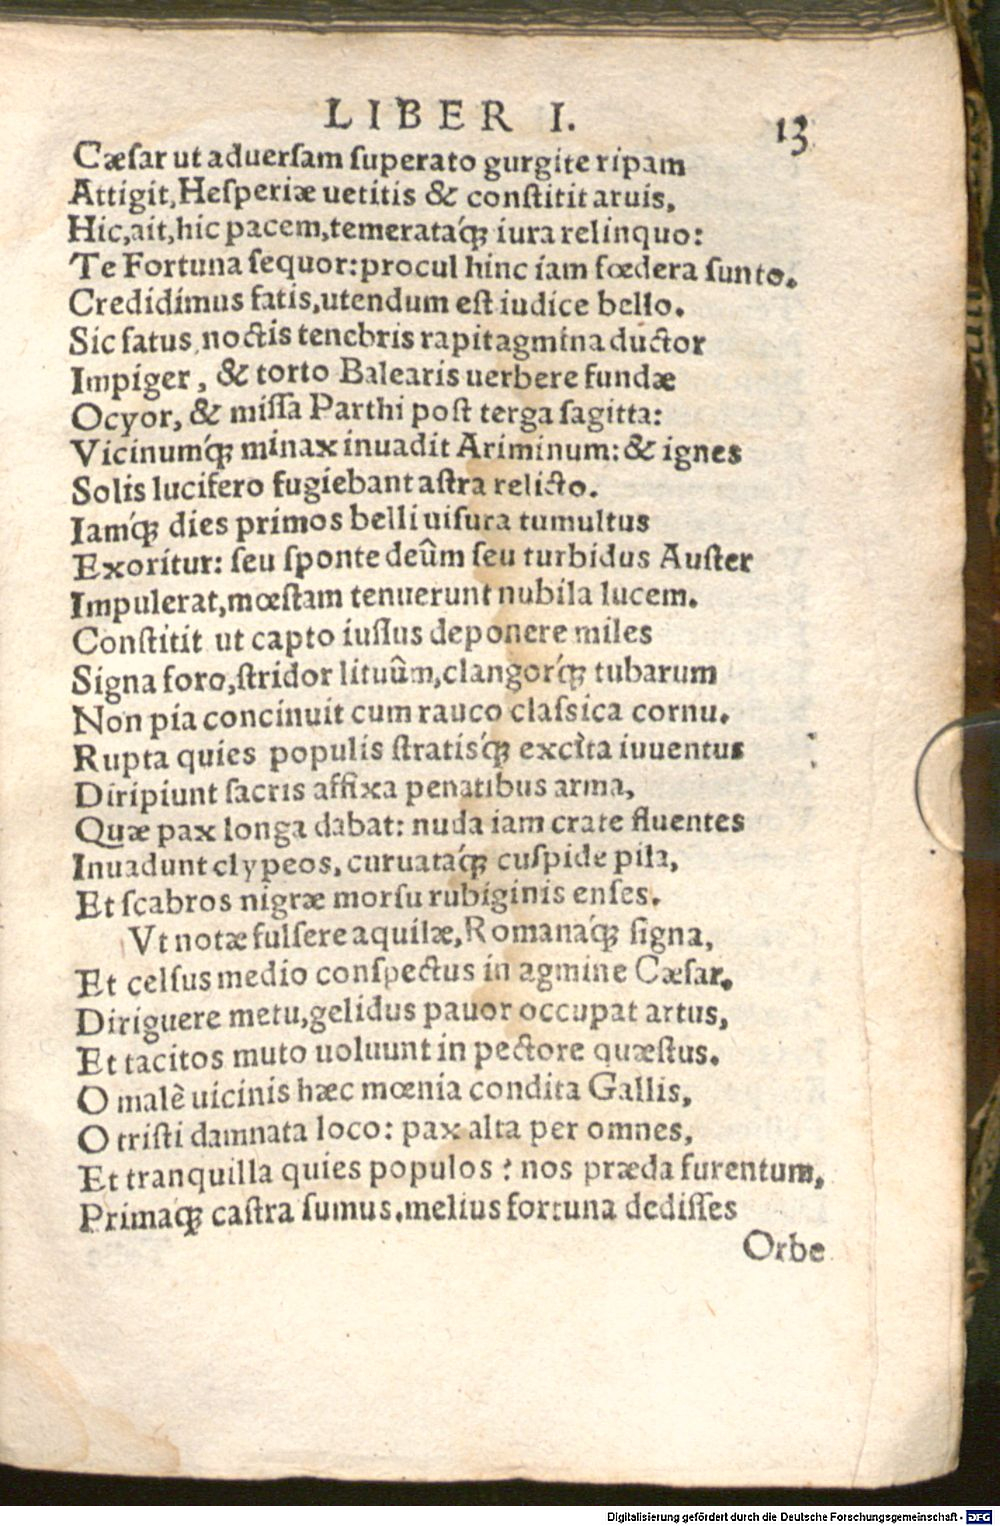 LIBER I. 13
Cæſar ut aduerſam ſuperato gurgite ripam
Attigit, Heſperiæ uetitis & conſtitit aruis,
Hic, ait, hic pacem, temeratáq; iura relinquo:
Te Fortuna ſequor: procul hinc iam fœdera ſunto.
Credidimus fatis, utendum eſt iudice bello.
Sic fatus, noctis tenebris rapit agmina ductor
Impiger, & torto Balearis uerbere fundæ
Ocyor, & miſſa Parthi poſt terga ſagitta:
Vicinumq́; minax inuadit Ariminum: & ignes
Solis lucifero fugiebant aſtra relicto.
Iamq́; dies primos belli uiſura tumultus
Exoritur: ſeu ſponte deûm ſeu turbidus Auſter
Impulerat, mœſtam tenuerunt nubila lucem.
Conſtitit ut capto iuſſus deponere miles
Signa foro, ſtridor lituûm, clangorq́; tubarum
Non pia concinuit cum rauco claſsica cornu.
Rupta quies populis ſtratisq́; excìta iuuentus
Diripiunt ſacris affixa penatibus arma,
Quæ pax longa dabat: nuda iam crate fluentes
Inuadunt clypeos, curuatáq; cuſpide pila,
Et ſcabros nigræ morſu rubiginis enſes.
Vt notæ fulſere aquilæ, Romanáq; ſigna,
Et celſus medio conſpectus in agmine Cæſar,
Diriguere metu, gelidus pauor occupat artus,
Et tacitos muto uoluunt in pectore quæſtus.
O malè uicinis hæc mœnia condita Gallis,
O triſti damnata loco: pax alta per omnes,
Et tranquilla quies populos: nos præda furentum,
Primaq; caſtra ſumus. melius fortuna dediſſes
Orbe
Digitalisierung gefördert durch die Deutsche Forschungsgemeinschaft - DFG